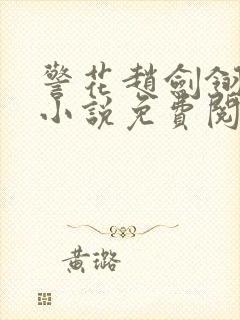 警花趙劍
小說免費閱
黃璐